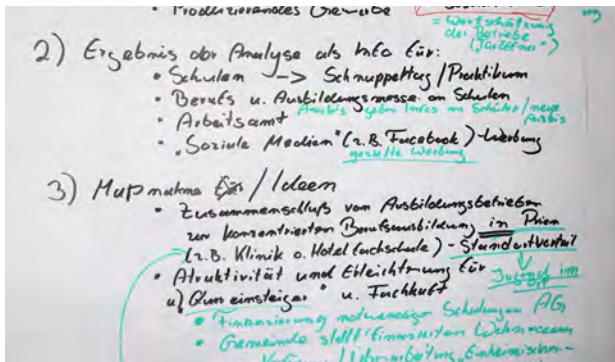 • Produzierendes Gewerbe
= Wertschätzung
der Betriebe
2) Ergebnis der Analyse als Info für:
• Schulen —> Schnuppertag/Praktikum
• Berufs u. Ausbildungsmesse an Schulen
Azubis geben Infos an Schüler/neue
Azubis
• Arbeitsamt
• "Soziale Medien" (z.B. Facebook)-Werbung
gezielte Werbung
3) Maßnahme für/Ideen
• Zusammenschluß von Ausbildungsbetrieben
zur konzentrierten Berufsausbildung in Prien
(z.B. Klinik o. Hotelfachschule) - Standortvorteil
• Atraktivität und Erleichterung für
Jugend im
Ort
"Quereinsteiger" u. Fachkraft
• Finanzierung notwendiger Schulungen AG
• Gemeinde stellt finanzierten Wohnraum